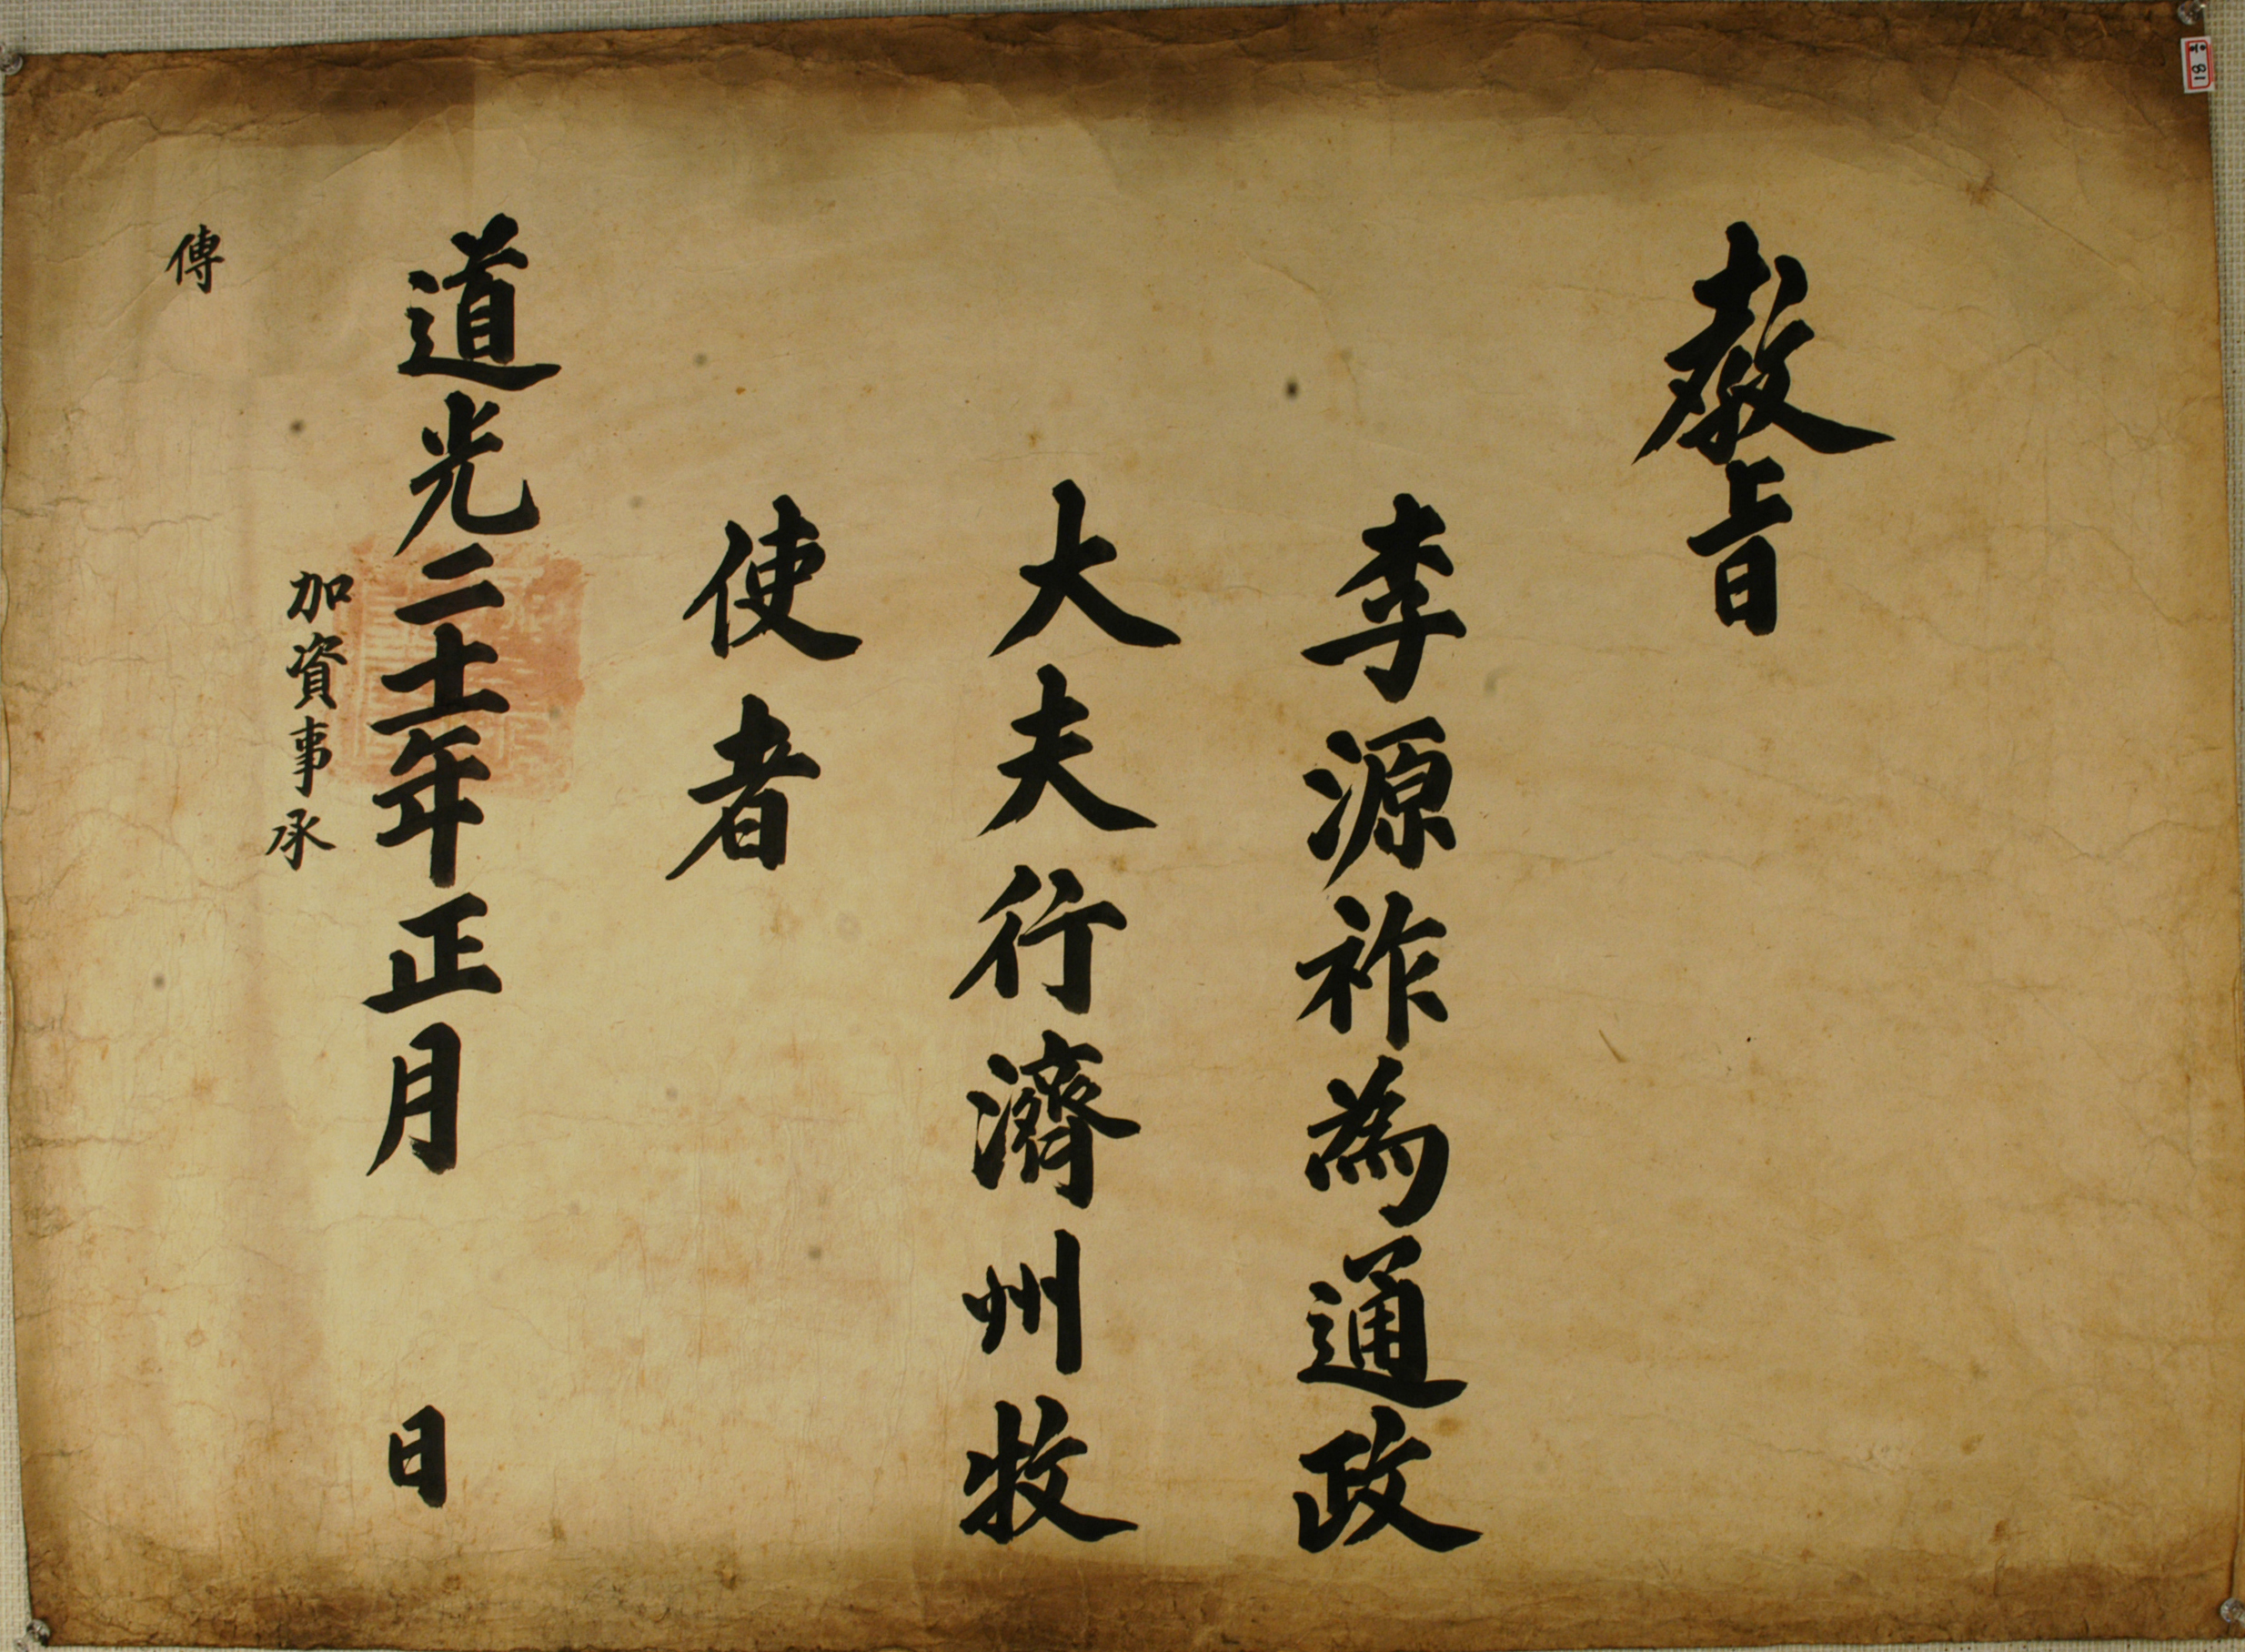 教旨
李源祚為通政
大夫行濟州牧
使者
道光二十一年正月 日
加資事承
傳